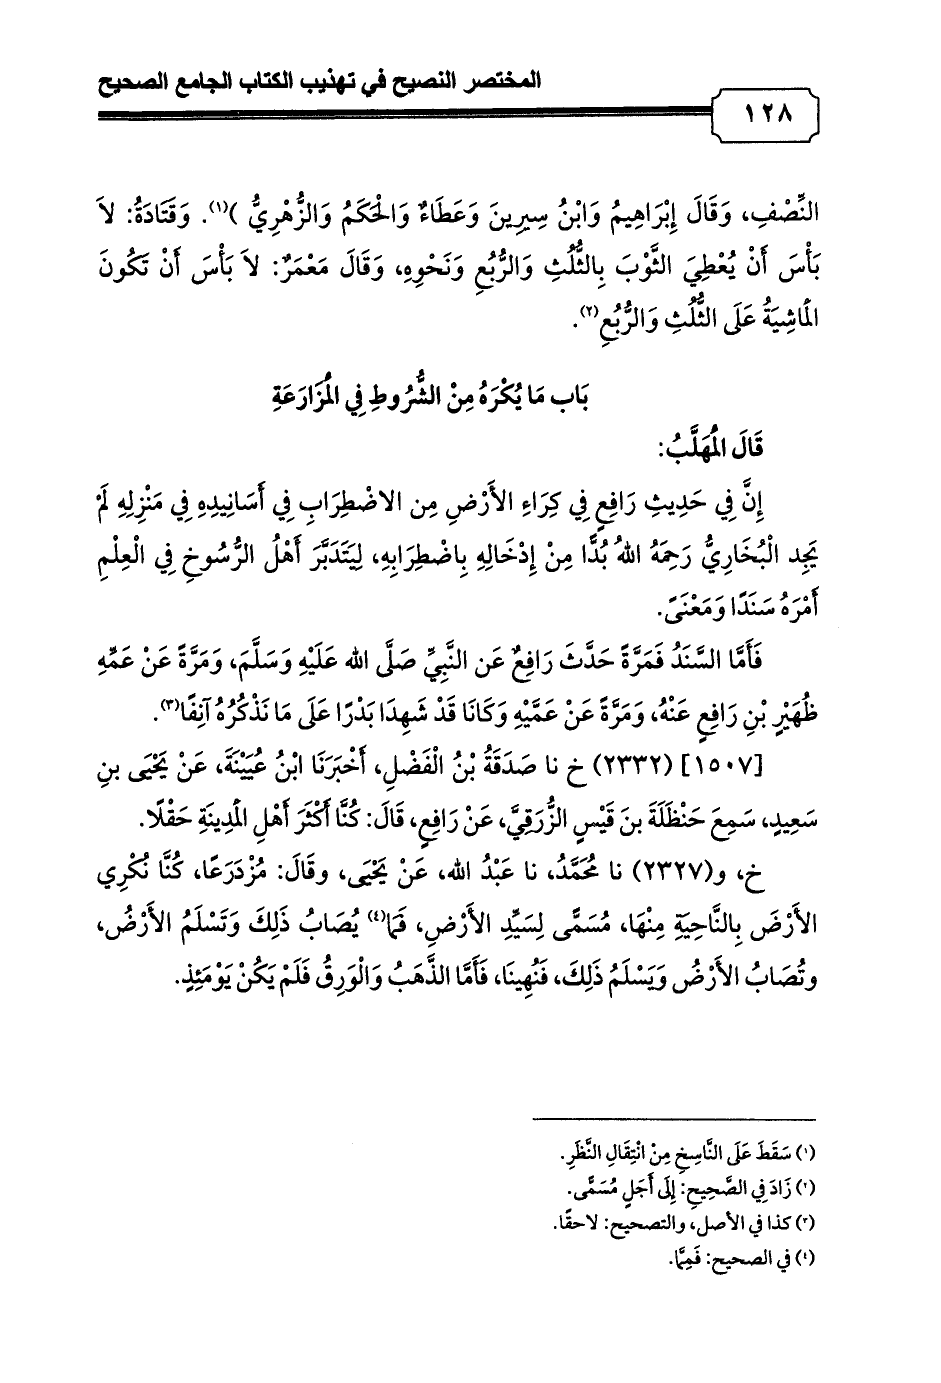 المختصر النصيح في تهذيب الكتاب الجامع الصحيح
١٢٨
النِّصْفِ، وَقَالَ إِبْرَاهِيمُ وَابْنُ سِيرِينَ وَعَطَاءٌ وَالْحَكَمُ وَالزُّهْرِيُّ )(١). وَقَتَادَةُ: لاَ
بَأْسَ أَنْ يُعْطِيَ الثَّوْبَ بِالثُّلُثِ وَالرُّبُعِ وَنَحْوِهِ، وَقَالَ مَعْمَرٌ: لاَ بَأْسَ أَنْ تَكُونَ
الْمَاشِيَةُ عَلَى الثُّلُثِ وَالرُّبُعِ(٢).
بَاب مَا يُكْرَهُ مِنْ الشُّرُوطِ فِي الْمُزَارَعَةِ
قَالَ الْمُهَلَّبُ:
إِنَّ فِي حَدِيثِ رَافِعٍ فِي كِرَاءِ الأَرْضِ مِن الاضْطِرَابِ فِي أَسَانِيدِهِ فِي مَنْزِلِهِ لَمْ
يَجِد الْبُخَارِيُّ رَحِمَهُ اللهُ بُدًّا مِنْ إِدْخَالِهِ بِاضْطِرَابِهِ، لِيَتَدَبَّرَ أَهْلُ الرُّسُوخِ فِي الْعِلْمِ
أَمْرَهُ سَنَدًا وَمَعْنَىً.
فَأَمَّا السَّنَدُ فَمَرَّةً حَدَّثَ رَافِعٌ عَن النَّبِيِّ صَلَّى الله عَلَيْهِ وَسَلَّمَ، وَمَرَّةً عَنْ عَمِّهِ
ظُهَيْرِ بْنِ رَافِعٍ عَنْهُ، وَمَرَّةً عَنْ عَمَّيْهِ وَكَانَا قَدْ شَهِدَا بَدْرًا عَلَى مَا نَذْكُرُهُ آنِفًا(٣).
[١٥٠٧] (٢٣٣٢) خ نا صَدَقَةُ بْنُ الْفَضْلِ، أَخْبَرَنَا ابْنُ عُيَيْنَةَ، عَنْ يَحْيَى بنِ
سَعِيدٍ، سَمِعَ حَنْظَلَةَ بنَ قَيْسٍ الزُّرَقِيَّ، عَنْ رَافِعٍ، قَالَ: كُنَّا أَكْثَرَ أَهْلِ الْمَدِينَةِ حَقْلًا.
خ، و(٢٣٢٧) نا مُحَمَّدُ، نا عَبْدُ الله، عَنْ يَحْيَى، وقَالَ: مُزْدَرَعًا، كُنَّا نُكْرِي
الأَرْضَ بِالنَّاحِيَةِ مِنْهَا، مُسَمًّى لِسَيِّدِ الأَرْضِ، فَمَا(٤) يُصَابُ ذَلِكَ وَتَسْلَمُ الأَرْضُ،
وتُصَابُ الأَرْضُ وَيَسْلَمُ ذَلِكَ، فَنُهِينَا، فَأَمَّا الذَّهَبُ وَالْوَرِقُ فَلَمْ يَكُنْ يَوْمَئِذٍ.
(١) سَقَطَ عَلَى النَّاسِخِ مِنْ انْتِقَالِ النَّظَرِ.
(٢) زَادَ فِي الصَّحِيحِ: إِلَى أَجَلٍ مُسَمًّى.
(٣) كذا في الأصل، والتصحيح: لاحقًا.
(٤) في الصحيح: فَمِمَّا.